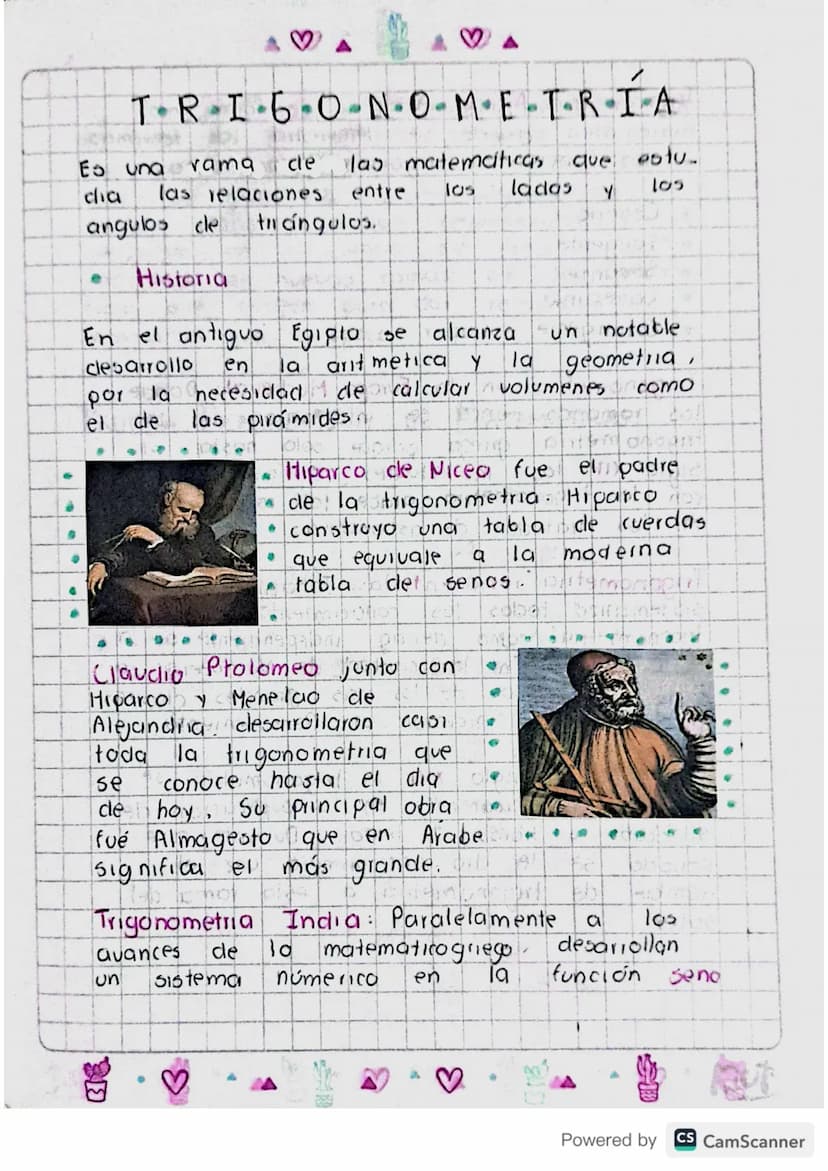 T·R·I·G·O·N·O·M·E·T·R·Í·A
Es una rama de las matemáticas que estu-
dia las relaciones entre los lados y los
angulos de triángulos.
• Historia
En el antiguo Egipto se alcanza un notable
desarrollo en la aritmetica y la geometria,
por la necesidad de calcular volumenes como
el de las pirámides.
Hiparco de Nicea fue el padre
de la trigonometria. Hiparco
construyo una tabla de cuerdas
que equivale a la moderna
tabla de senos.
Claudio Ptolomeo junto con
Hiparco y Menelao de
Alejandria desarrollaron casi
toda la trigonometria que
se conoce hasta el dia
de hoy. Su principal obra
fué Almagesto que en Árabe
significa el más grande.
Trigonometria India: Paralelamente a los
avances de la matematica griega. desarrollan
un sistema númerico en la función seno
Powered by CS CamScanner